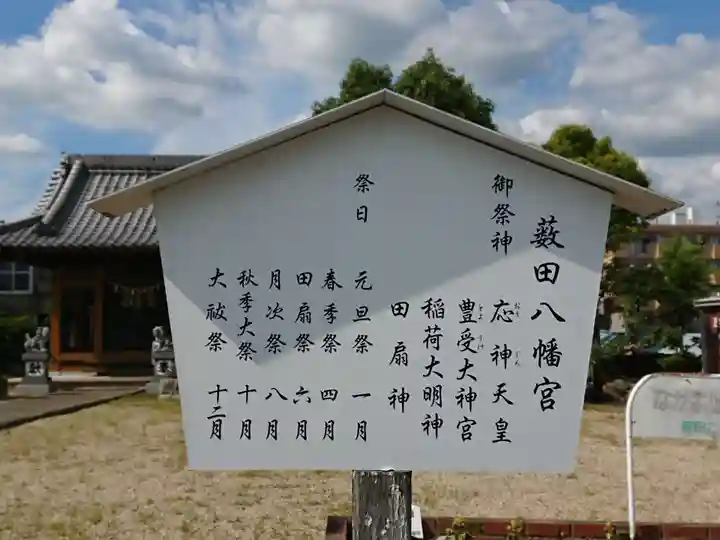 薮田八幡宮
御祭神 応神天皇
豊受大神宮
稲荷大明神
田扇神
祭日 元旦祭 一月
春季祭 四月
田扇祭 六月
月次祭 八月
秋季大祭 十月
大祓祭 十二月